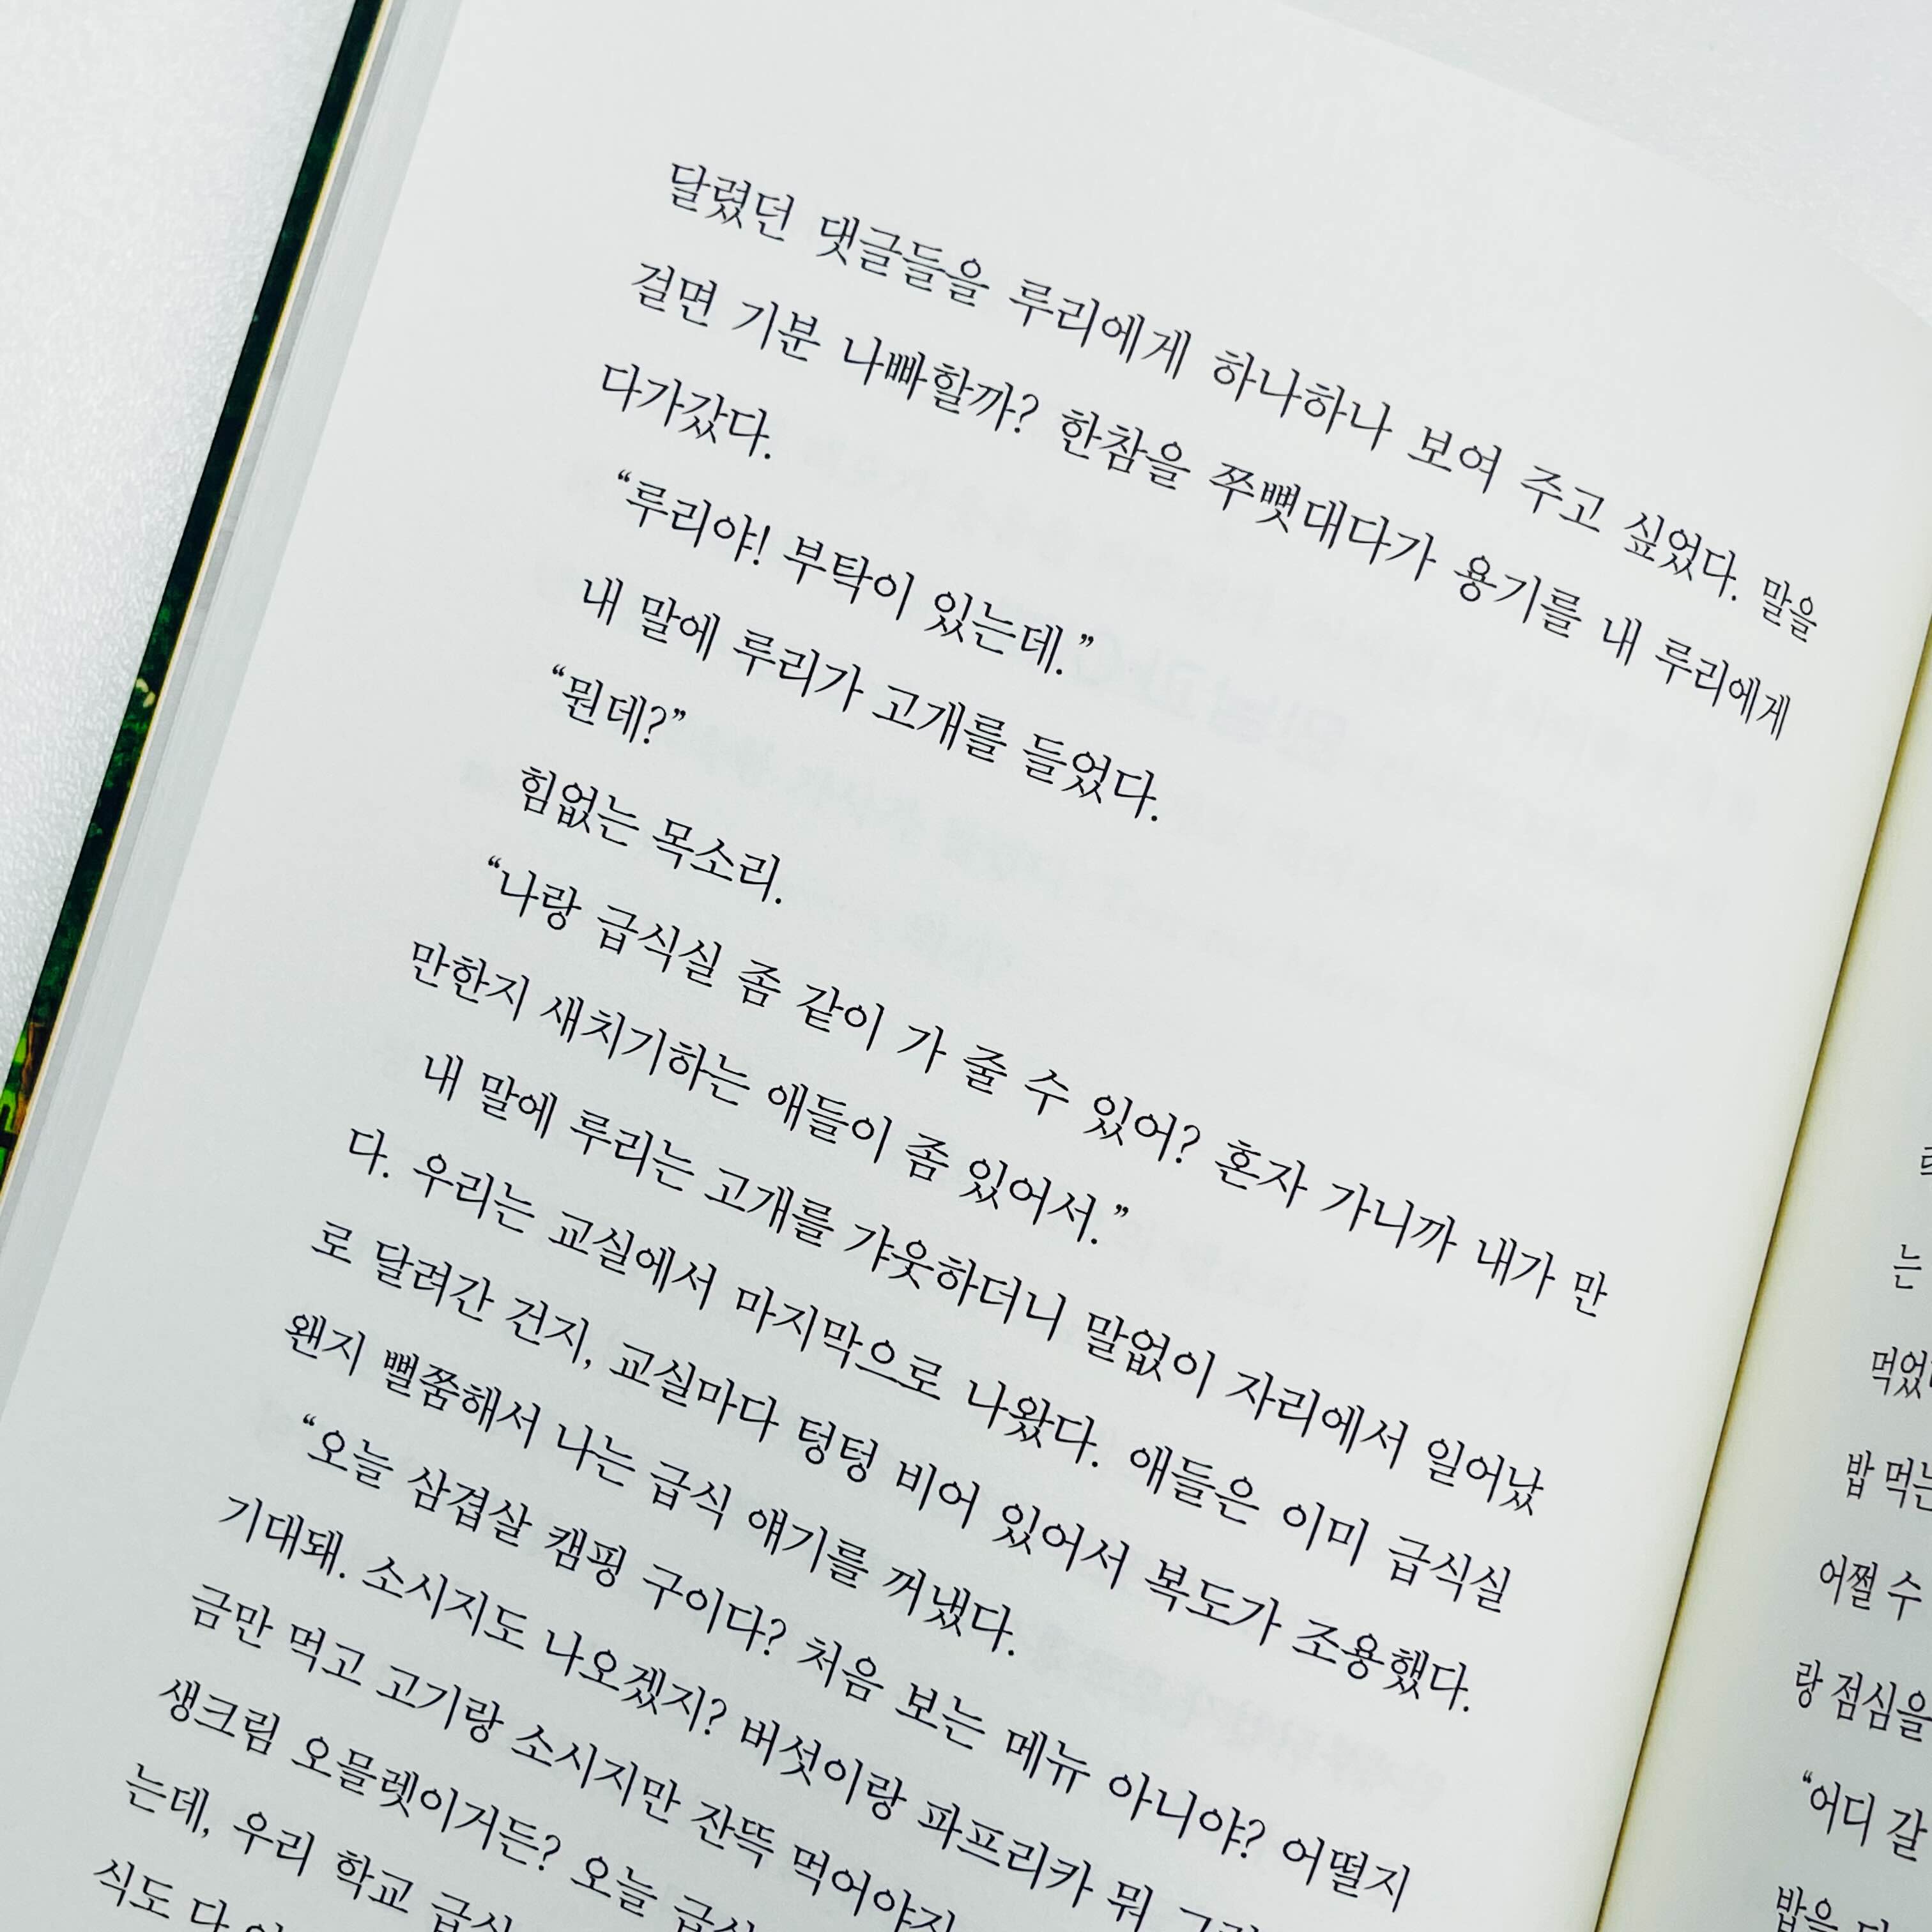 달렸던 댓글들을 루리에게 하나하나 보여 주고 싶었다. 말을
걸면 기분 나빠할까? 한참을 쭈뼛대다가 용기를 내 루리에게
다가갔다.
“루리야! 부탁이 있는데.”
내 말에 루리가 고개를 들었다.
“뭔데?”
힘없는 목소리.
“나랑 급식실 좀 같이 가 줄 수 있어? 혼자 가니까 내가 만
만한지 새치기하는 애들이 좀 있어서.”
내 말에 루리는 고개를 갸웃하더니 말없이 자리에서 일어났
다. 우리는 교실에서 마지막으로 나왔다. 애들은 이미 급식실
로 달려간 건지, 교실마다 텅텅 비어 있어서 복도가 조용했다.
왠지 뻘쭘해서 나는 급식 얘기를 꺼냈다.
“오늘 삼겹살 캠핑 구이다? 처음 보는 메뉴 아니야? 어떨지
기대돼. 소시지도 나오겠지? 버섯이랑 파프리카 뭐
금만 먹고 고기랑 소시지만 잔뜩 먹어야지
생크림 오믈렛이거든? 오늘
는데, 우리 학교
식도 다
는
먹었
밥 먹는
어쩔 수
랑 점심을
“어디 갈
밥을